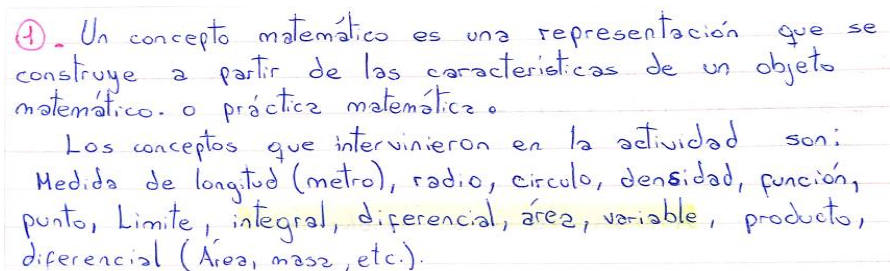 ①. Un concepto matemático es una representación que se
construye a partir de las caracteristicas de un objeto
matemático. o práctica matemática.
Los conceptos que intervinieron en la actividad son:
Medida de longitud (metro), radio, circulo, densidad, función,
punto, Limite, integral, diferencial, área, variable, producto,
diferencial (Área, masa, etc.).